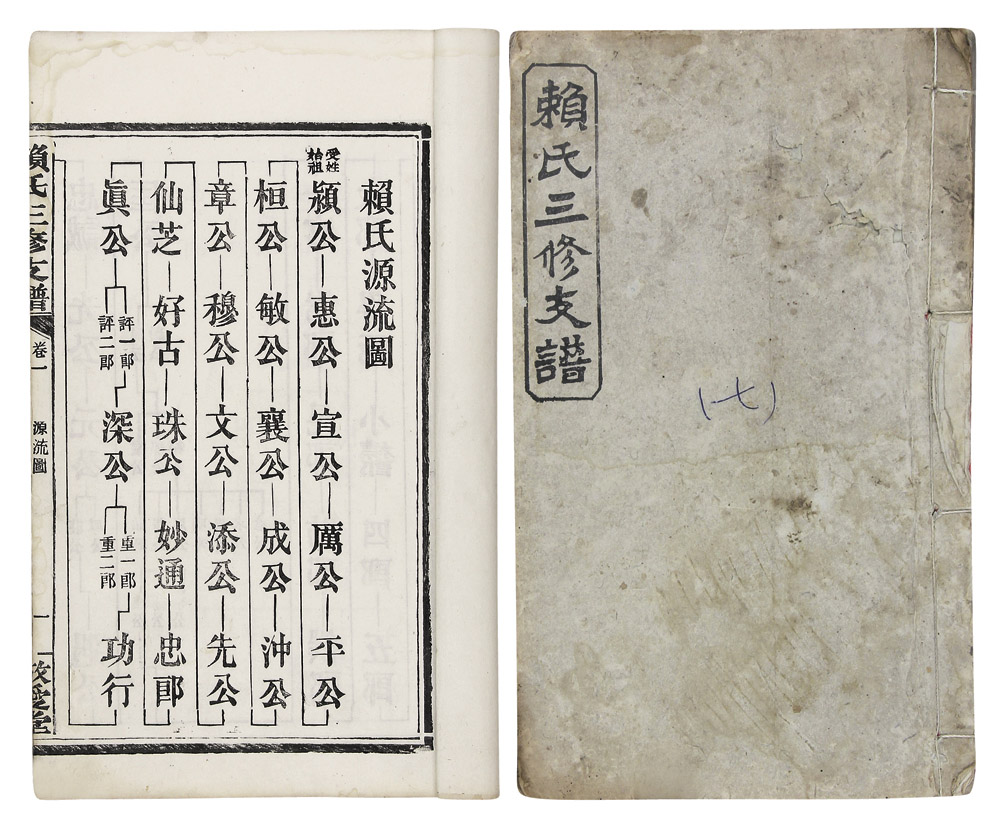 賴氏源流圖
受姓始祖
潁公 惠公 宣公 厲公 平公
桓公 敏公 襄公 成公 沖公
章公 穆公 文公 添公 先公
仙芝 好古 珠公 妙通 忠郎
眞公 評一郎 評二郎 深公 重一郎 重二郎 功行
賴氏三修支譜 卷一 源流圖 一 敬愛堂
賴氏三修支譜
(七)